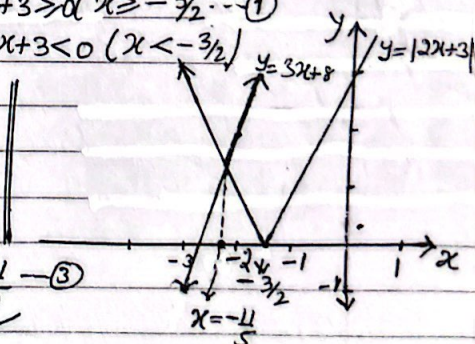 +3≥0( x≥-3/2 --①
x+3<0 (x<-3/2)
y
y=|2x+3|
y=3x+8
-3 -2 -1 1 x
-3/2
—③
x=-11
5